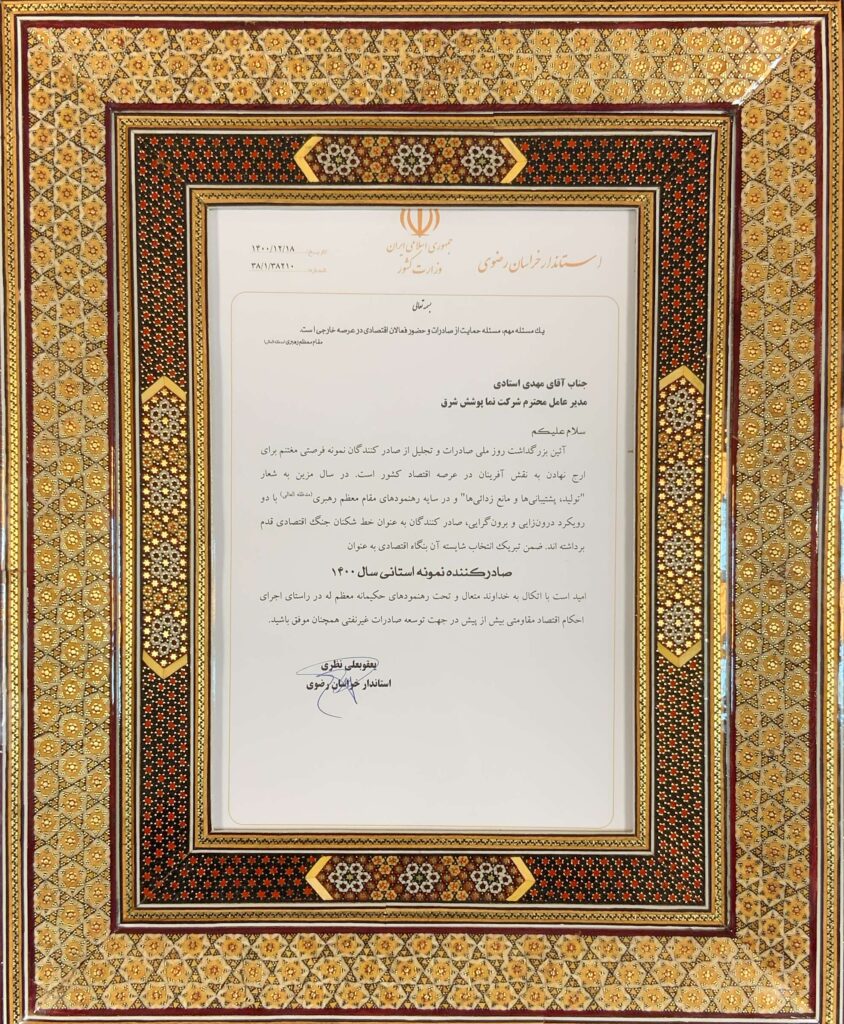 جمهوری اسلامی ایران
وزارت کشور
استاندار خراسان رضوی
تاریخ: ۱۴۰۰/۱۲/۱۸
شماره: ۳۸/۱/۳۸۲۱۰
بسمه تعالی
یک مسئله مهم، مسئله حمایت از صادرات و حضور فعالان اقتصادی در عرصه خارجی است.
مقام معظم رهبری
جناب آقای مهدی استادی
مدیر عامل محترم شرکت نما پوشش شرق
سلام علیکم
آئین بزرگداشت روز ملی صادرات و تجلیل از صادر کنندگان نمونه فرصتی مغتنم برای
ارج نهادن به نقش آفرینان در عرصه اقتصاد کشور است. در سال مزین به شعار
"تولید، پشتیبانی‌ها و مانع زدائی‌ها" و در سایه رهنمودهای مقام معظم رهبری(مدظله العالی) با دو
رویکرد درون‌زایی و برون‌گرایی، صادر کنندگان به عنوان خط شکنان جنگ اقتصادی قدم
برداشته اند. ضمن تبریک انتخاب شایسته آن بنگاه اقتصادی به عنوان
صادرکننده نمونه استانی سال ۱۴۰۰
امید است با اتکال به خداوند متعال و تحت رهنمودهای حکیمانه معظم له در راستای اجرای
احکام اقتصاد مقاومتی بیش از پیش در جهت توسعه صادرات غیرنفتی همچنان موفق باشید.
یعقوبعلی نظری
استاندار خراسان رضوی